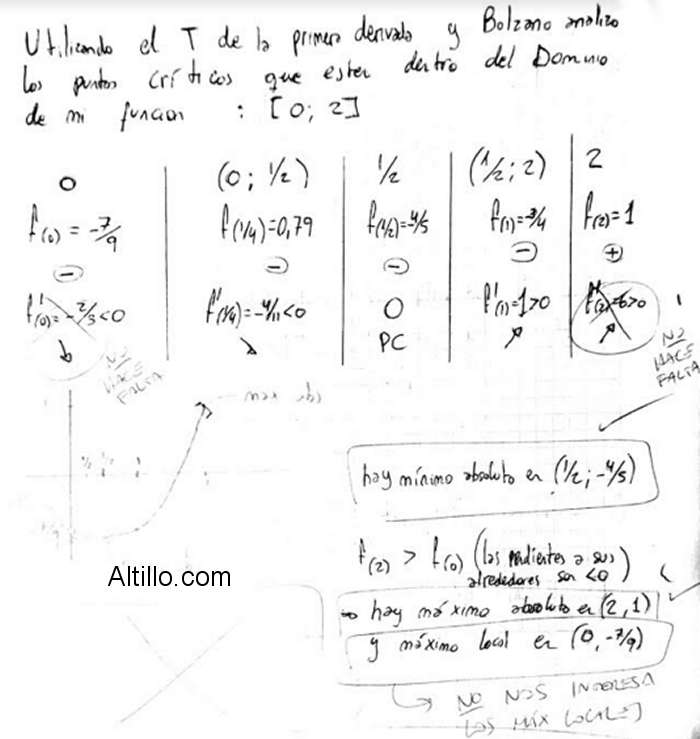 Utilizando el T de la primera derivada y Bolzano analizo
los puntos críticos que esten dentro del Dominio
de mi funcion : [0; 2]
0 (0; 1/2) 1/2 (1/2; 2) 2
f(0) = -7/9 f(1/4)=0,79 f(1/2)=-4/5 f(1)=-3/4 f(2)=1
- - - - +
f'(0)=-2/3<0 f'(1/4)=-4/11<0 0 f'(1)=1>0 f'(2)=6>0
↘ ↘ PC ↗ ↗
NO
HACE
FALTA
NO
HACE
FALTA
max abs
hay mínimo absoluto en (1/2; -4/5)
f(2) > f(0) (las pendientes a sus
alrededores son <0)
Altillo.com
→ hay máximo absoluto en (2,1)
y máximo local en (0, -7/9)
↳ NO NOS INTERESA
LOS MÁX LOCALES